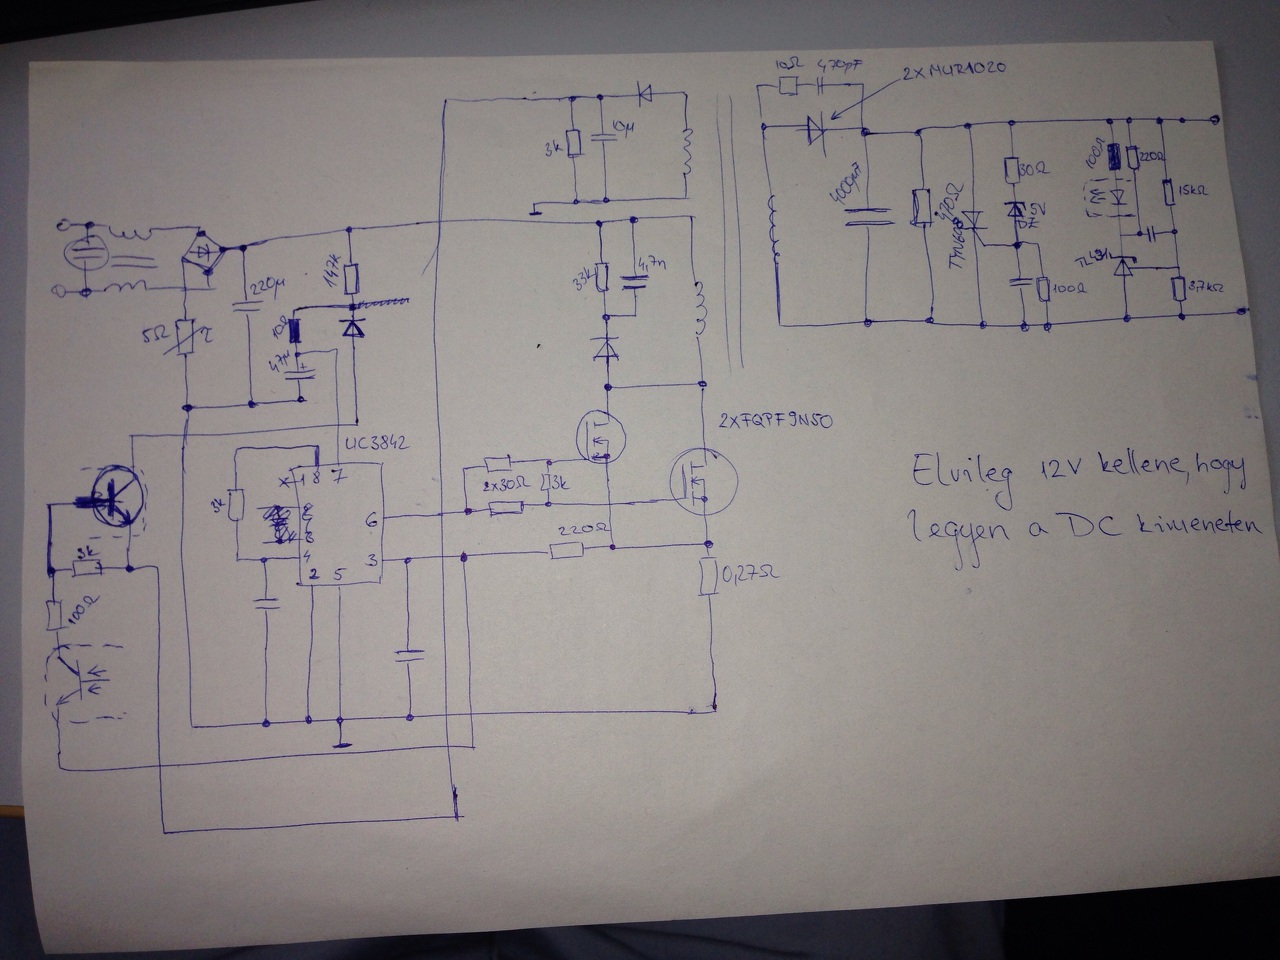 10Ω 470pF
2XMUR1020
3k
10μ
4000μF
470Ω
TYN608
30Ω
5V
DZ
100Ω
100Ω
220Ω
15kΩ
TL431
3,7kΩ
147k
220μ
5Ω
10Ω
47μ
33k
4,7n
2XFQPF9N50
UC3842
X 1 8 7
3k
6
4
3
2 5
2X30Ω
3k
220Ω
0,27Ω
3k
100Ω
Elvileg 12V kellene, hogy
legyen a DC kimeneten